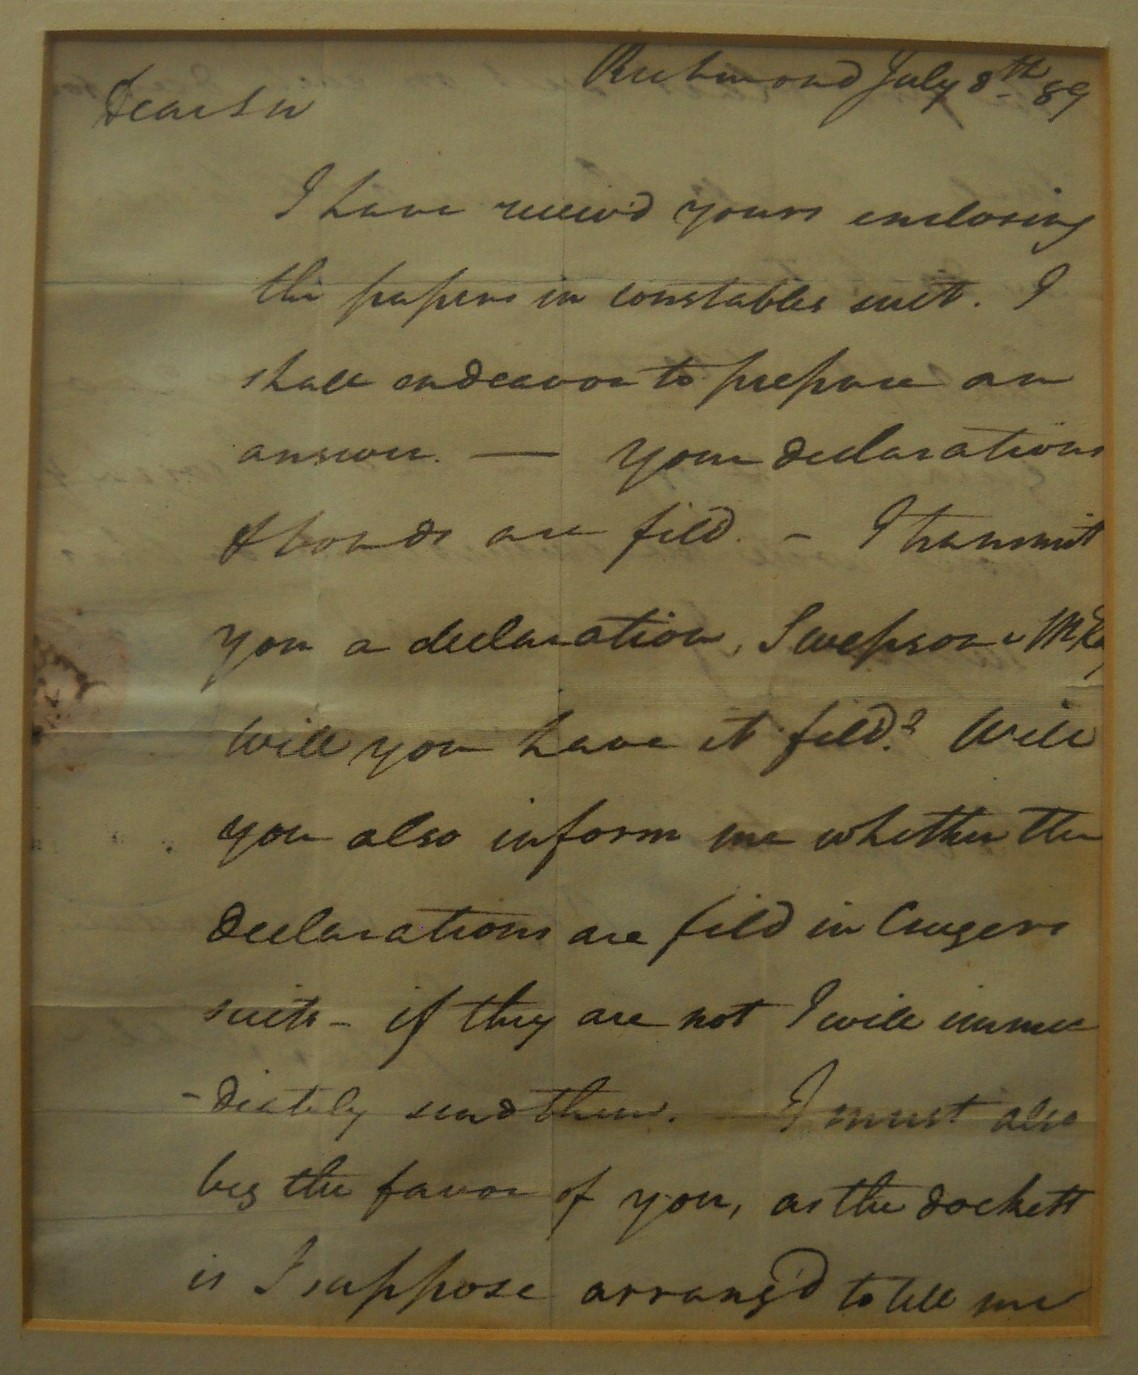 Richmond July 8th 89
Dear Sir
I have receiv'd yours enclosing
the papers in constables suit. I
shall endeavor to prepare an
answer. — Your declarations
& bonds are fil'd. – I transmit
you a declaration, Swepson v
Will you have it fil'd? Will
you also inform me whether the
declarations are fil'd in Crugers
suits – if they are not I will imme
-diately send them. I must also
beg the favor of you, as the dockett
is I suppose arrang'd to tell me